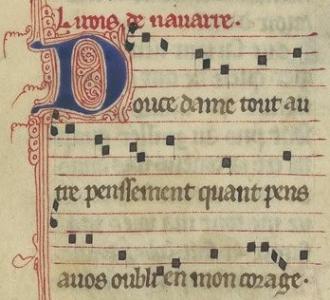 Li rois de nauarre.
Douce dame tout au
tre penssement quant pens
a uos oubli en mon corage.